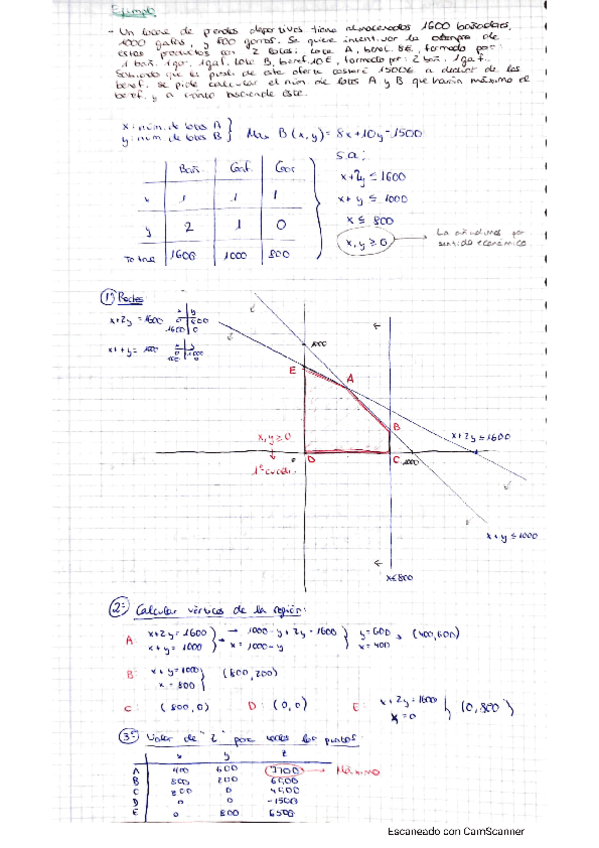 Ejemplo
- Un local de prendas deportivas tiene almacenados 1600 bañadores,
1000 gafas, y 800 gorros. Se quiere incentivar la compra de
estos productos con 2 lotes: Lote A, benef. 8€, formado por:
1 bañ. 1gor. 1gaf. Lote B, benef. 10€, formado por: 2 bañ. 1gaf.
Sabiendo que la publi. de esta oferta costará 1500€ a deducir de los
benef. se pide calcular el núm. de lotes A y B que harán máximo el
benef. y a cuánto asciende éste.
x = núm. de lotes A
y = núm. de lotes B } Max B(x,y) = 8x+10y-1500
s.a:
Bañ. Gaf. Gor.
x 1 1 1
y 2 1 0
Total 1600 1000 800
x+2y ≤ 1600
x+y ≤ 1000
x ≤ 800
x,y ≥ 0
La añadimos por
sentido económico.
1) Rectas
x+2y = 1600
x y
0 800
1600 0
x+y = 1000
x y
0 1000
1000 0
1000
E
A
B
x,y ≥ 0
x+2y = 1600
0
D
C
1000
1er cuadr.
x+y ≤ 1000
x≤800
2º Calcular vértices de la región:
A: x+2y = 1600
x+y = 1000 } → 1000-y+2y = 1600
x = 1000-y } y=600
x=400 → (400,600)
B: x+y=1000
x = 800 } (800,200)
C: (800,0) D: (0,0) E: x+2y=1600
x=0 } (0,800)
3º Valor de "Z" para todos los puntos:
x y z
A 400 600 7700 → Máximo
B 800 200 6900
C 800 0 4900
D 0 0 -1500
E 0 800 6500
Escaneado con CamScanner